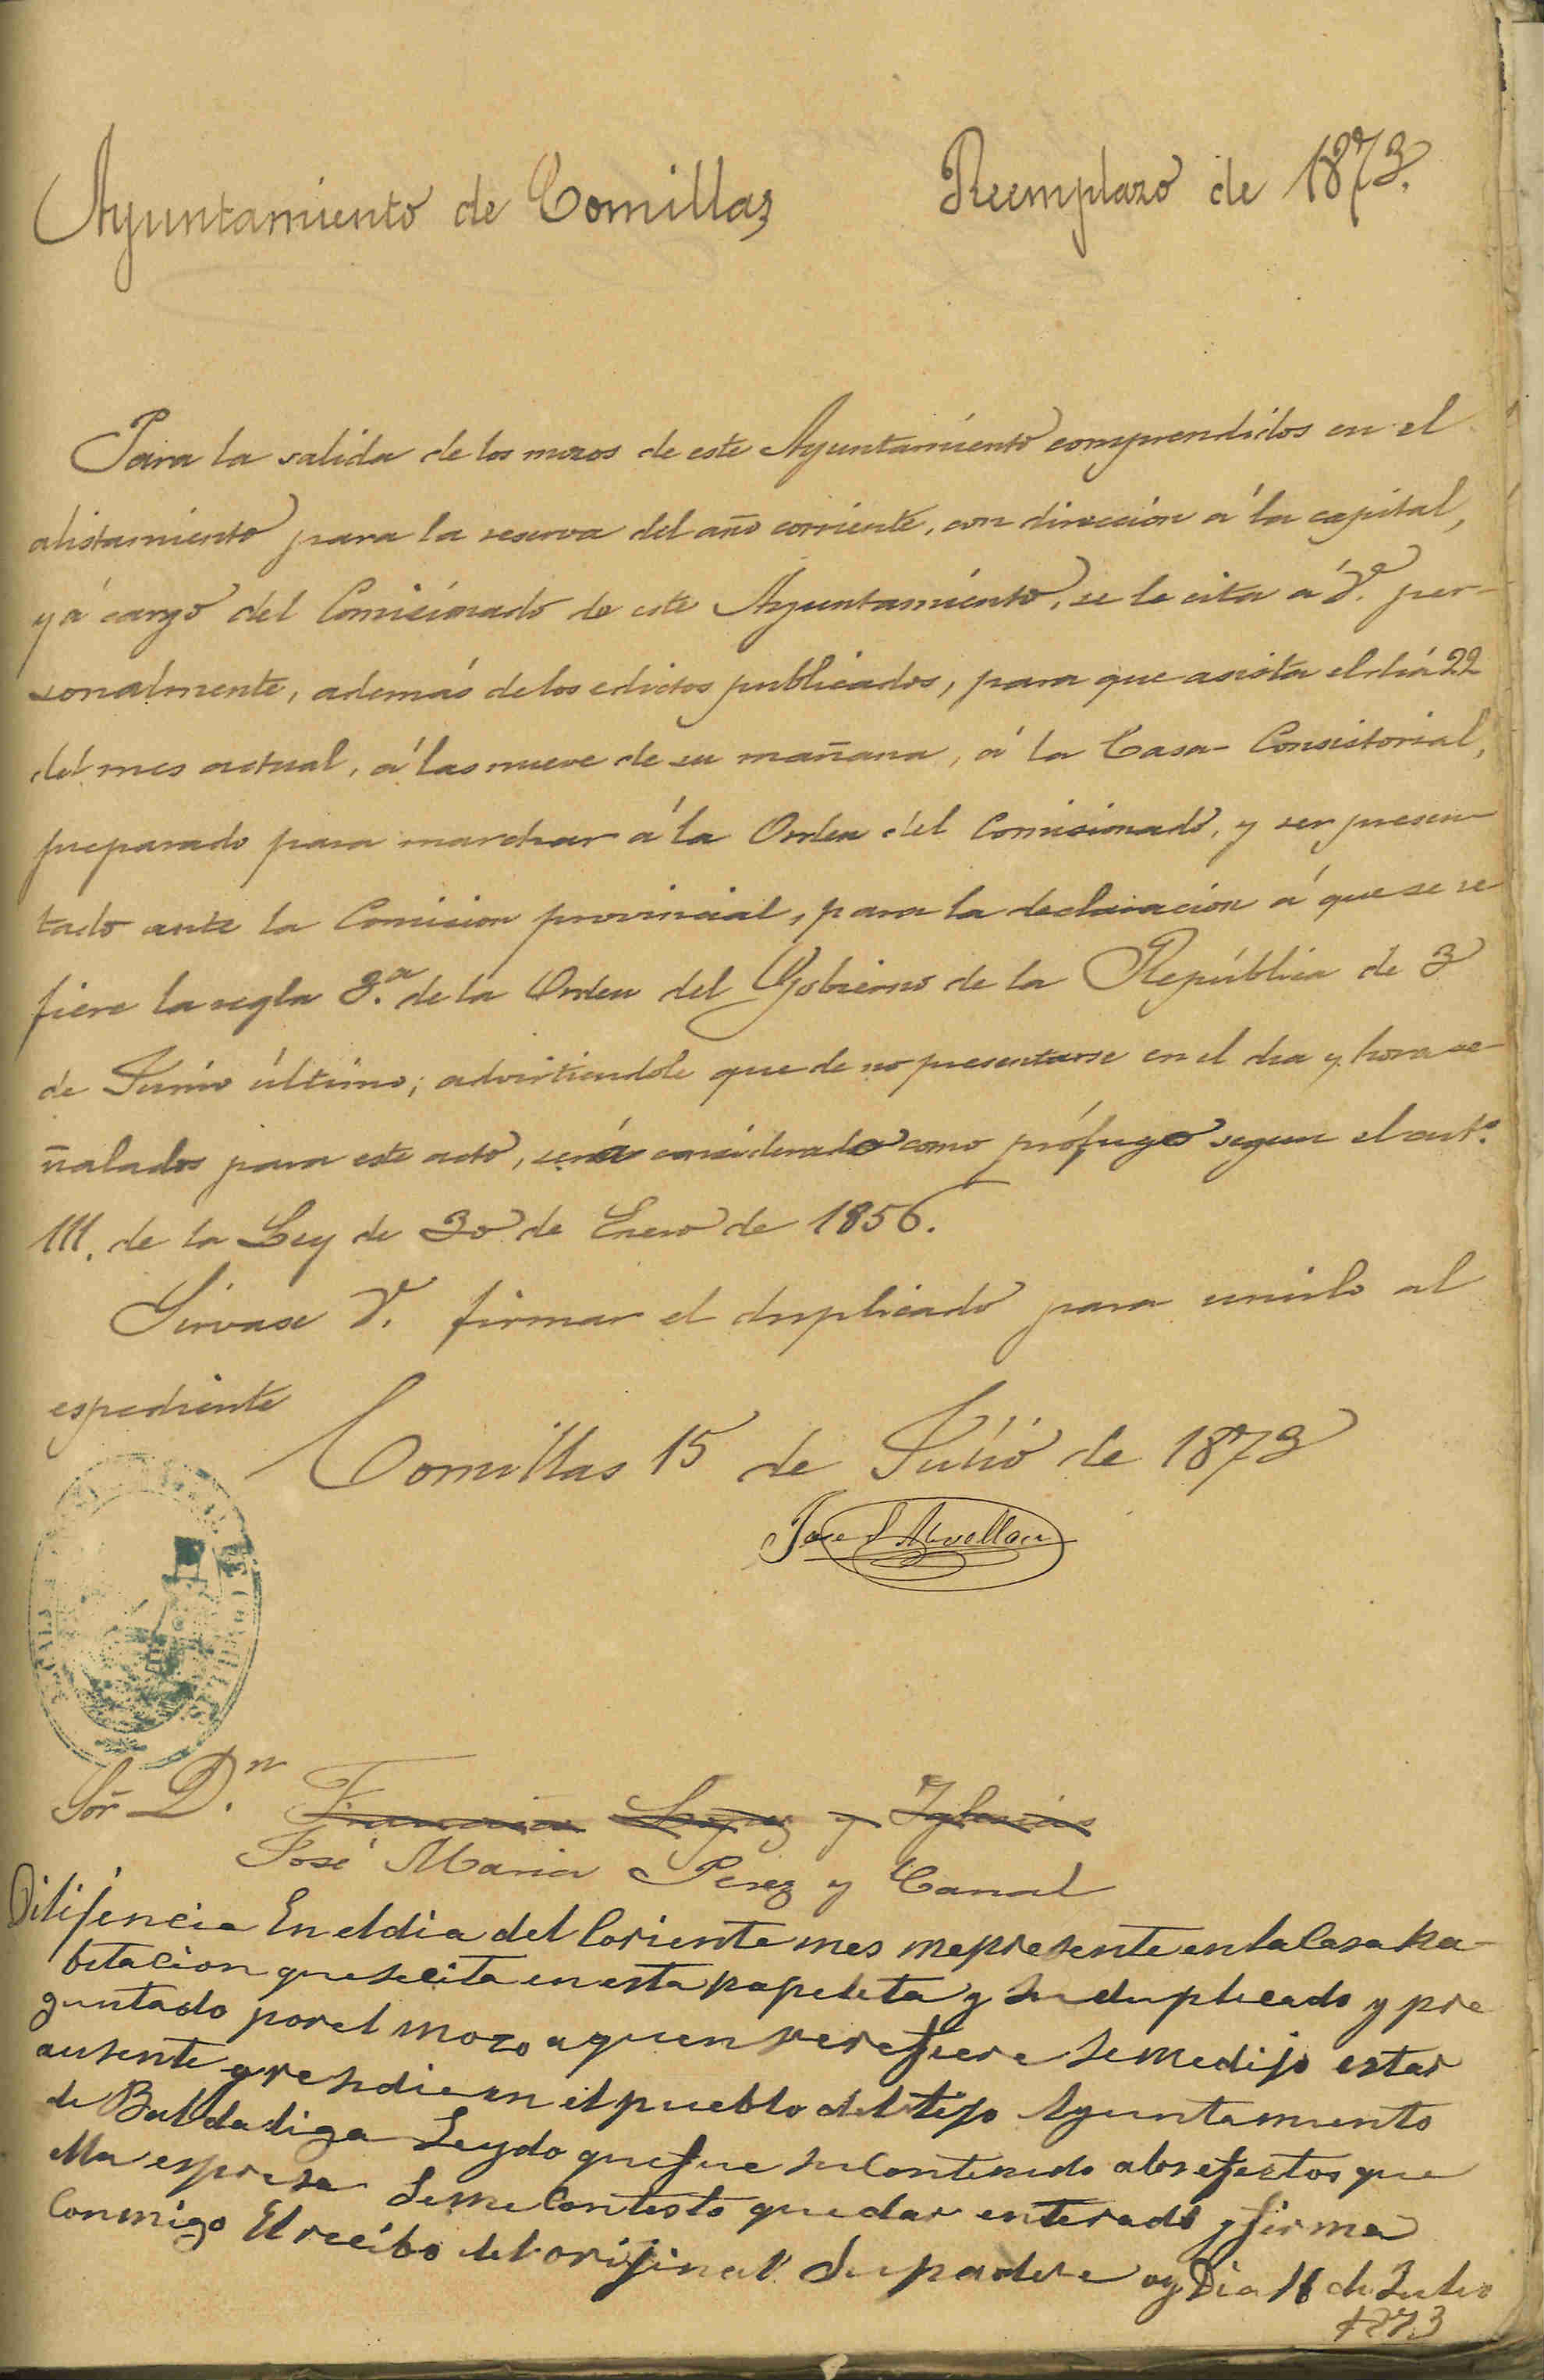 Ayuntamiento de Comillas
Reemplazo de 1873.
Para la salida de los mozos de este Ayuntamiento comprendidos en el
alistamiento para la reserva del año corriente, con direccion á la capital,
y á cargo del Comisionado de este Ayuntamiento, se le cita á V. per-
sonalmente, además de los edictos publicados, para que asista el dia 22
del mes actual, á las nueve de su mañana, á la Casa-Consistorial,
preparado para marchar á la Orden del Comisionado, y ser presen-
tado ante la Comision provincial, para la declaracion á que se re
fiere la regla 3.ª de la Orden del Gobierno de la República de 3
de Junio último; advirtiendole que de no presentarse en el dia y hora se-
ñalados para este acto, será considerado como prófugo segun el art.º
111. de la Ley de 30 de Enero de 1856.
Sirvase V. firmar el duplicado para unirlo al
espediente
Comillas 15 de Julio de 1873
Jose
Sor D.n Francisco Lopez y Iglesias
José Maria Perez y Canal
Dilijencia En el dia del Coriente mes me presente en la Casa ha-
bitacion que se cita en esta papeleta y su duplicado y pre
guntado por el mozo a quien se refiere se me dijo estar
ausente y residir en el pueblo del tejo Ayuntamiento
de Baldaliga Leydo que fue su Contenido a los efectos que
ella espresa Se me Contesto quedar enterado y firma
Conmigo El recibo del orijinal Su padre oy Dia 16 de Julio
1873